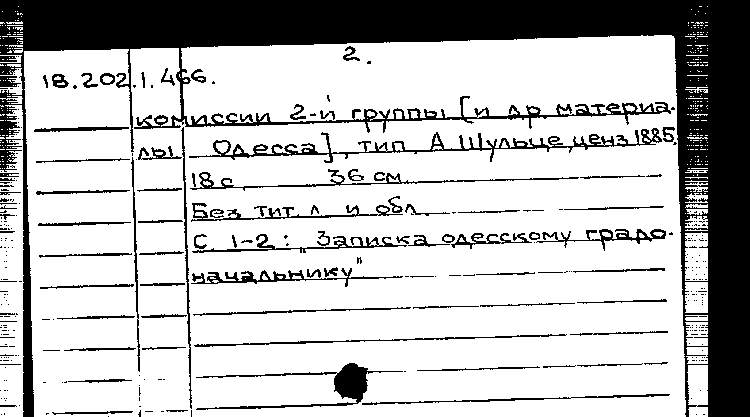 2.
18.202.1.466.
комиссии 2-й группы [и др. материа-
лы Одесса], тип. А Шульце, ценз 1885.
18 с. 36 см.
Без тит. л. и обл.
С 1-2: „Записка одесскому градо-
начальнику"